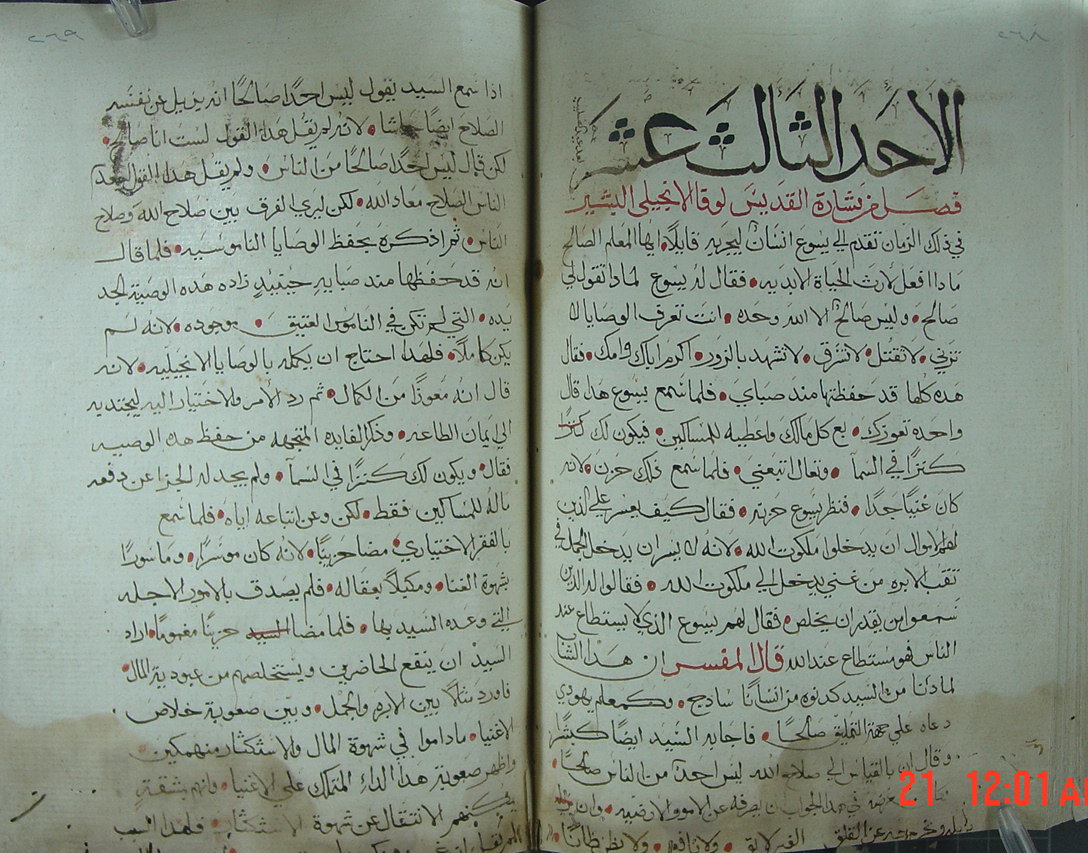 ٢٦٨
الاحد الثالث عشر
فصل من بشارة القديس لوقا الانجيلي البشير
في ذلك الزمان تقدم الي يسوع انسان ليجربه قايلا ايها المعلم الصالح
ماذا افعل لارث الحياة الابديه فقال له يسوع لماذا تقول لي
صالح وليس صالح الا الله وحده انت تعرف الوصايا لا
تزني لا تقتل لا تسرق لا تشهد بالزور اكرم اباك وامك فقال
هذه كلها قد حفظتها منذ صباي فلما سمع يسوع هذا قال
واحده تعوزك بع كل مالك واعطيه للمساكين فيكون لك
كنزا في السما وتعال اتبعني فلما سمع ذلك حزن لانه
كان غنيا جدا فنظر يسوع حزنه فقال كيف يعسر علي الذين
لهم الاموال ان يدخلوا ملكوت الله لانه لايسر ان يدخل الجمل في
ثقب الابره من غني يدخل الي ملكوت الله فقالوا له الذين
سمعوا من يقدر ان يخلص فقال لهم يسوع الذي لا يستطاع عند
الناس فهو مستطاع عند الله قال المفسر ان هذا الشاب
لما دنا من السيد كدنوه من انسانا ساذج وكمعلم يهودي
دعاه علي جهة التمليق صالحا فاجابه السيد ايضا كبشرا
وقال ان بالقياس الي صلاح الله ليس احدا من الناس صالحا
في هذا الجواب ان يصرفه عن الامور الارضيه وان
٢٦٩
اذا سمع السيد يقول ليس احدا صالحا انه يزيل عن نفسه
الصلاح ايضا حاشا لانه لم يقل هذا القول لست انا صالح
لكن قال ليس احدا صالحا من الناس ولم يقل هذا القول
الناس الصلاح معاد الله لكن ليري الفرق بين صلاح الله وصلاح
الناس ثم اذكره بحفظ الوصايا الناموسيه فلما قال
انه قد حفظها منذ صبايه حينيذ زاده هذه الوصية الجد
يده التي لم تكن في الناموس العتيق موجوده لانه لم
يكن كاملا فلهذا احتاج ان يكمله بالوصايا الانجيليه لانه
قال انه معوزا من الكمال ثم رد الامر والاختيار اليه ليجتذبه
الي ايمان الطاعه وذكر الفايده المتجهه من حفظ هذه الوصيه
فقال ويكون لك كنزا في السما ولم يجد له الجزا عن دفعه
ماله للمساكين فقط لكن وعن اتباعه اياه فلما سمع
بالفقر الاختياري مضا حزينا لانه كان موسرا وماسورا
بشهوة الغنا ومكبلا بعقاله فلم يصدق بالامور الاجله
التي وعده السيد بها فلما مضا السيد حزينا مغموما اراد
السيد ان ينفع الحاضرين ويستخلصهم من عبودية المال
فاورد مثالا بين الابره والجمل وبين صعوبة خلاص
الاغنيا ماداموا في شهوة المال والاستكثار منهمكين
واظهر صعوبة هذا الداء المتملك علي الاغنيا فانهم بشقة
يمكنهم الانتقال عن شهوة الاستكثار فلهذا السبب
21 12:01 A